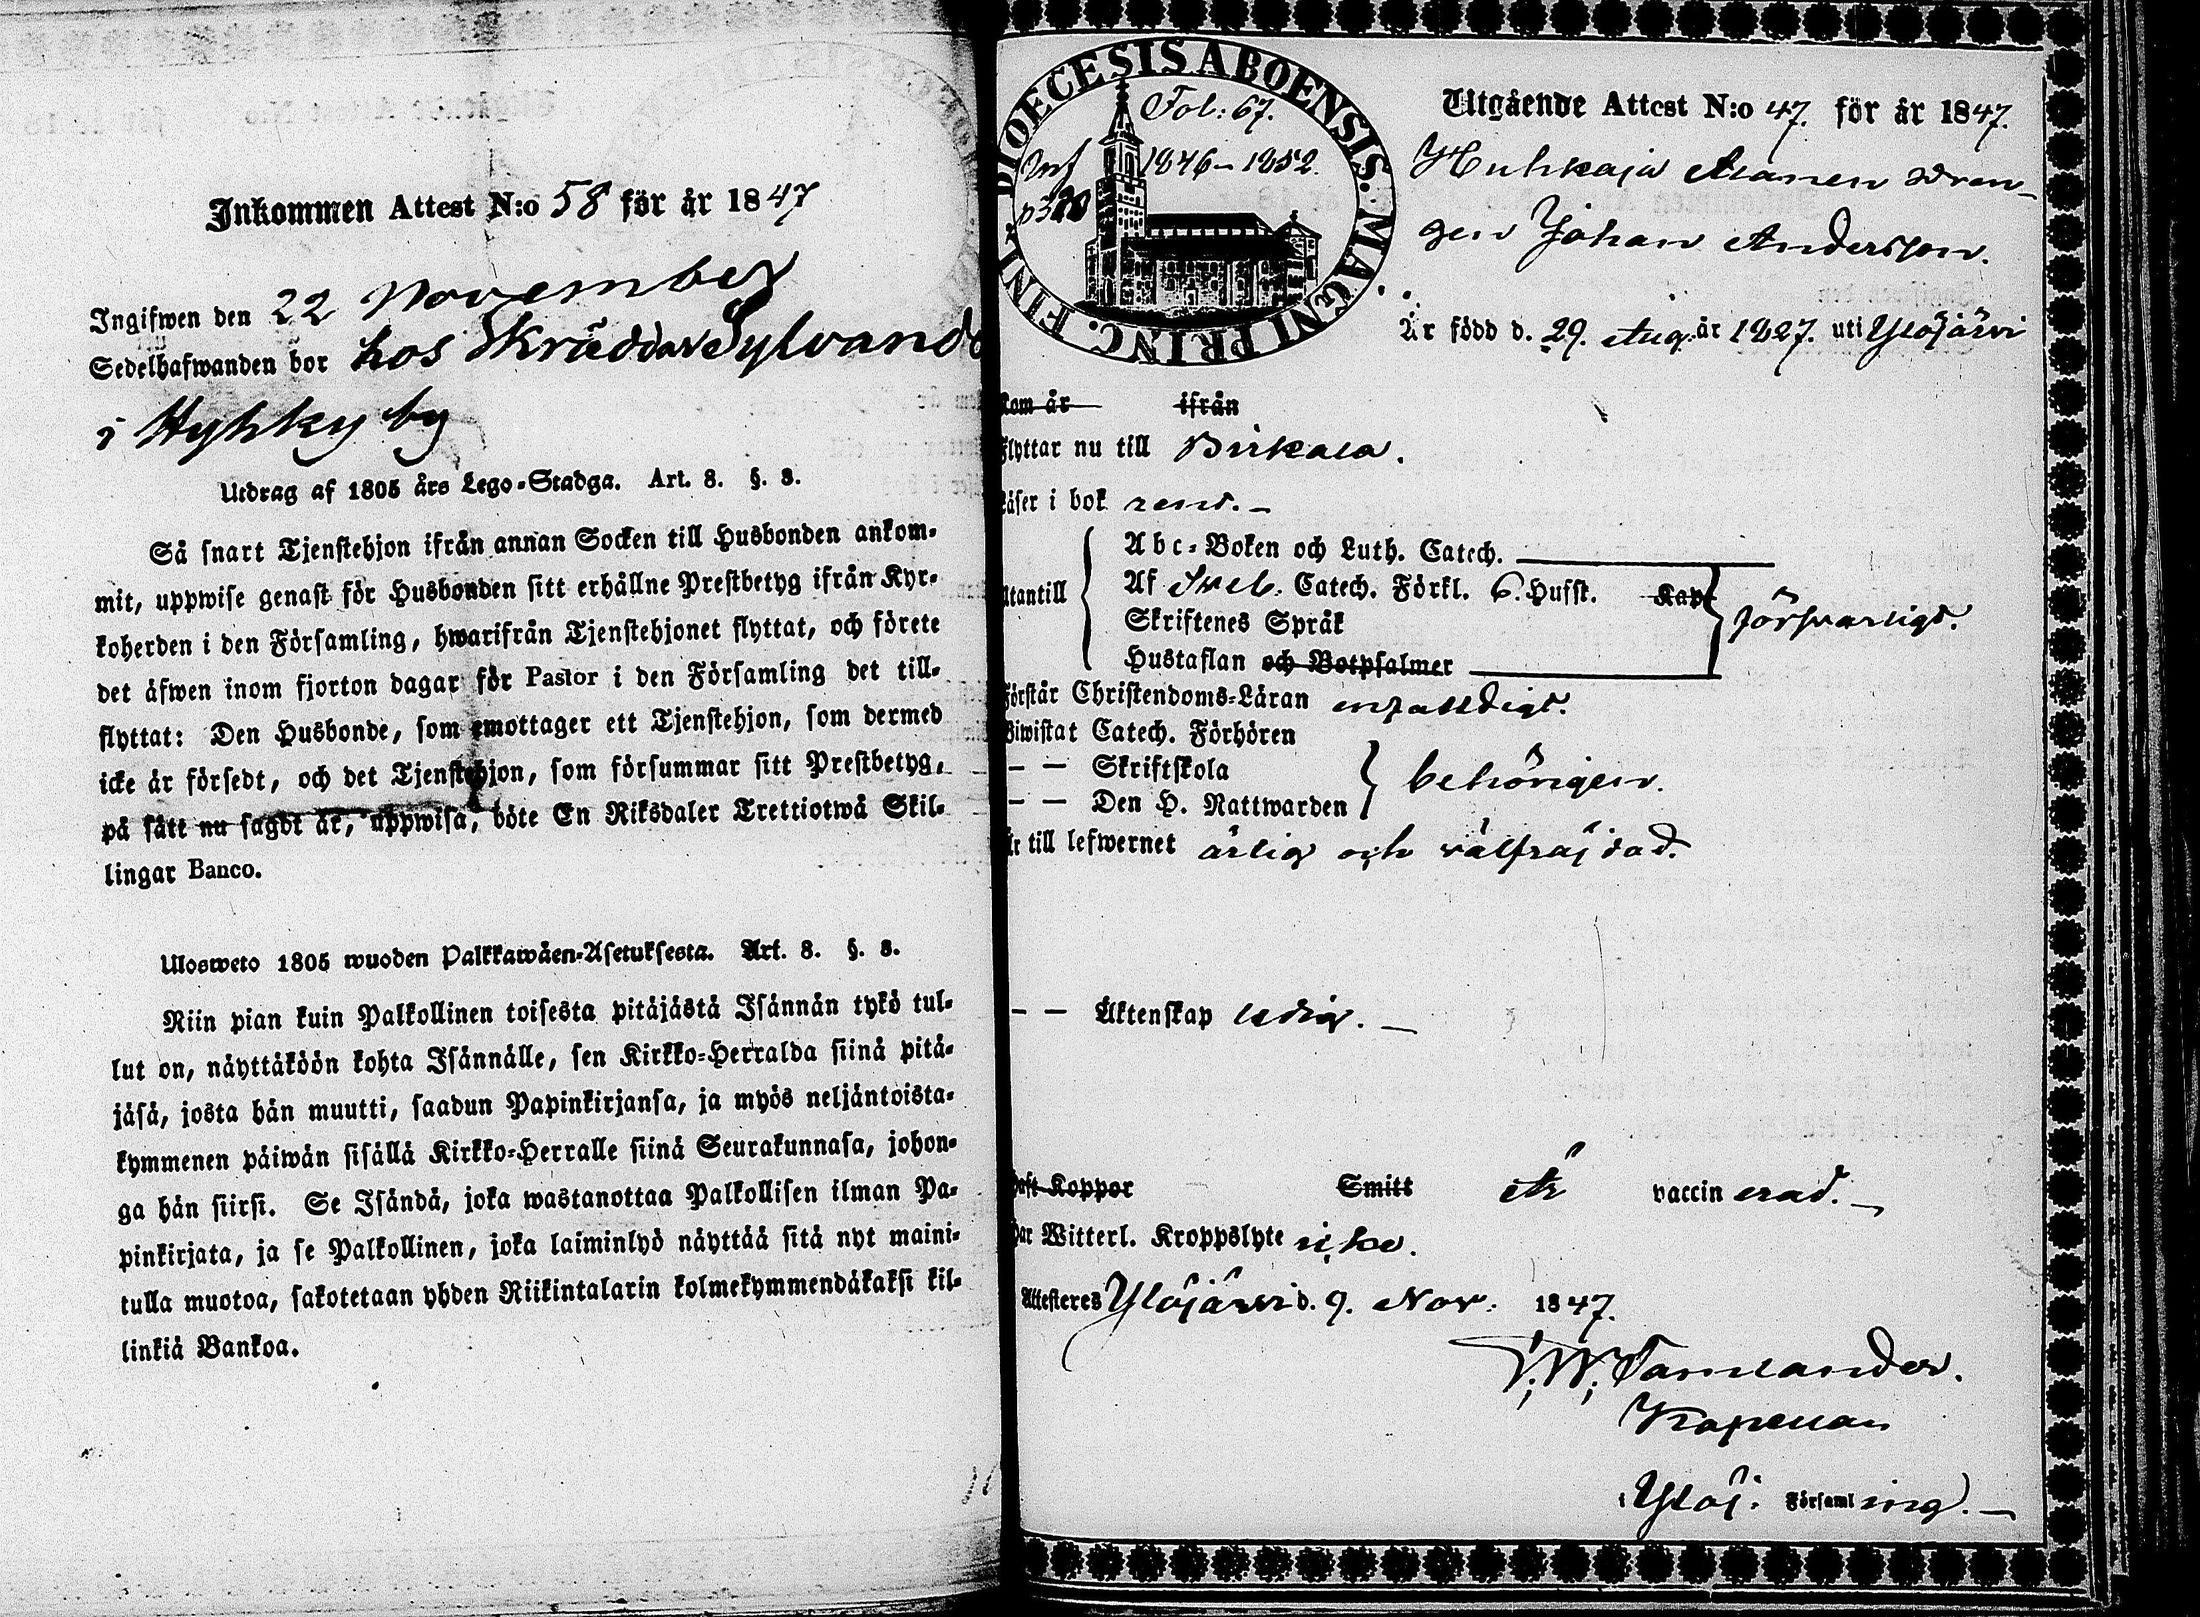 Inkommen Attest N:o 58 för år 1847
Ingifwen den 22 November
Sedelhafwanden bor hos Skräddar Sylvand
i Hyhky by
Utdrag af 1805 års Lego-Stadga. Art. 8. §. 8.
Så snart Tjenstehjon ifrån annan Socken till Husbonden ankom-
mit, uppwise genast för Husbonden sitt erhållne Prestbetyg ifrån Kyr-
koherden i den Församling, hwarifrån Tjenstehjonet flyttat, och förete
det äfwen inom fjorton dagar för Pastor i den Församling det till-
flyttat: Den Husbonde, som emottager ett Tjenstehjon, som dermed
icke är försedt, och det Tjenstehjon, som försummar sitt Prestbetyg,
på sätt nu sagdt är, uppwisa, böte En Riksdaler Trettiotwå Skil-
lingar Banco.
Ulosweto 1805 wuoden Palkkawäen-Asetuksesta. Art. 8. §. 8.
Niin pian kuin Palkollinen toisesta pitäjästä Isännän tykö tul-
lut on, näyttäköön kohta Isännälle, sen Kirkko-Herralda siinä pitä-
jäsä, josta hän muutti, saadun Papinkirjansa, ja myös neljäntoista-
kymmenen päiwän sisällä Kirkko-Herralle siinä Seurakunnasa, johon-
ga hän siirsi. Se Isändä, joka wastanottaa Palkollisen ilman Pa-
pinkirjata, ja se Palkollinen, joka laiminlyö näyttää sitä nyt maini-
tulla muotoa, sakotetaan yhden Riikintalarin kolmekymmendäkaksi kil-
linkiä Bankoa.
DIOECESIS ABOENSIS. MAGNI PRINC. FINL.
Fol: 67.
1846–1852.
Utgående Attest N:o 47. för år 1847.
Huhkaja Alanen Dren-
gen Johan Andersson.
Är född d. 29. Aug. år 1827. uti Ylöjärvi
Kom år ifrån
Flyttar nu till Birkala.
Läser i bok rent.
Utantill
Abc-Boken och Luth. Catech.
Af Sveb. Catech. Förkl. 6. Hufst. Kap.
Skriftenes Språk
Hustaflan och Botpsalmer
försvarligt.
Förstår Christendoms-Läran enfalldigt.
Biwistat Catech. Förhören
— — Skriftskola
— — Den H. Nattwarden
behörigen.
Är till lefwernet ärlig och välfräjdad.
— — Äktenskap ledig.
Haft Koppor Smitt Är vaccinerad.
Har Witterl. Kroppslyte icke.
Attesteres Ylöjärvi d. 9. Nov. 1847.
Tamlander.
Kapellan
i Ylöj. Församling.